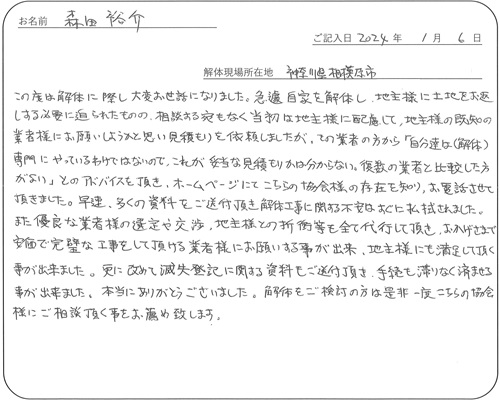 お名前 森田 裕介
ご記入日 2024 年 1 月 6 日
解体現場所在地 神奈川県相模原市
この度は解体に際し大変お世話になりました。急遽自家を解体し、地主様に土地をお返
しする必要に迫られたものの、相談する宛もなく当初は地主様に配慮して、地主様の既知の
業者様にお願いしようかと思い見積もりを依頼しましたが、その業者の方から「自分達は(解体)
専門にやっているわけではないので、これが妥当な見積もりかは分からない。複数の業者と比較した方
がいい」とのアドバイスを頂き、ホームページにてこちらの協会様の存在を知り、お電話させて
頂きました。早速、多くの資料をご送付頂き解体工事に関する不安はすぐに払拭されました。
また優良な業者様の選定や交渉、地主様との折衝等を全て代行して頂き、おかげさまで
安価で完璧な工事をして頂ける業者様にお願いする事が出来、地主様にも満足して頂く
事が出来ました。更に改めて滅失登記に関する資料もご送付頂き、手続も滞りなく済ませる
事が出来ました。本当にありがとうございました。解体をご検討の方は是非一度こちらの協会
様にご相談頂く事をお薦め致します。